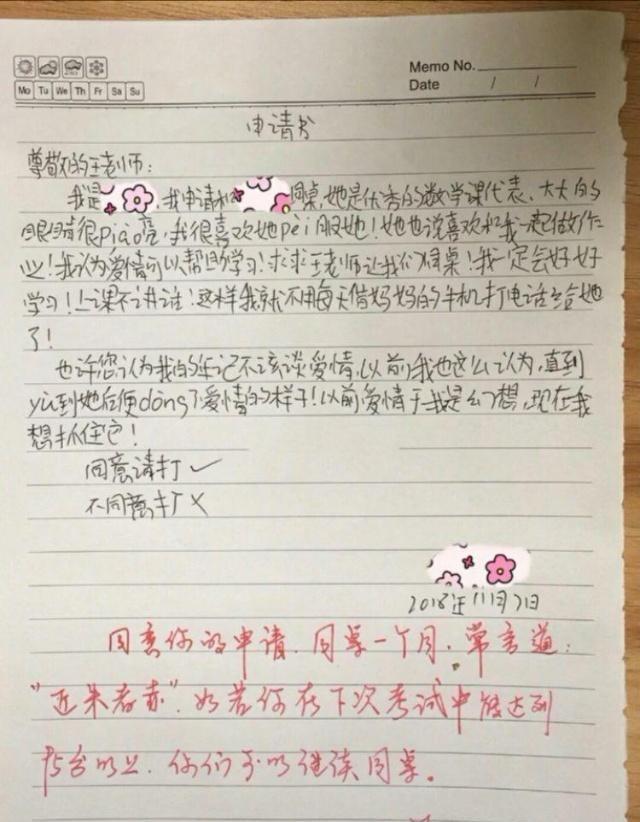 Memo No.
Mo Tu We Th Fr Sa Su
Date / /
申请书
尊敬的王老师:
我是,我申请和同桌,她是优秀的数学课代表、大大的
眼睛很piào亮,我很喜欢她pèi服她!她也说喜欢和我一起做作
业!我认为爱情可以帮助学习!求求王老师让我们同桌!我一定会好好
学习!上课不讲话!这样我就不用每天借妈妈的手机打电话给她
了!
也许您认为我的年记不该谈爱情,以前我也这么认为,直到
yù到她后便dǒng了爱情的样子!以前爱情于我是幻想,现在我
想抓住它!
同意请打✓
不同意打×
2018年11月7日
同意你的申请,同桌一个月,常言道:
"近朱者赤",如若你在下次考试中能达到
95分以上,你们可以继续同桌。